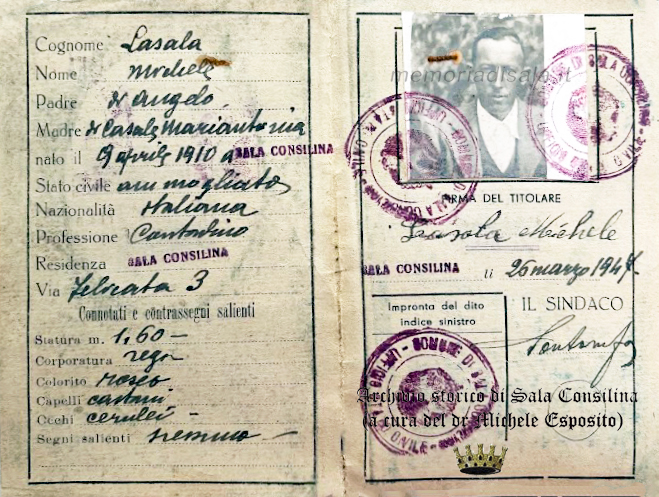 Cognome Lasala
Nome Michele
Padre d'Angelo
Madre Mariantonia
nato il 9 aprile 1910 a SALA CONSILINA
Stato civile ammogliato
Nazionalità Italiana
Professione Contadino
Residenza SALA CONSILINA
Via 3
Connotati e contrassegni salienti
Statura m. 1,60
Corporatura reg
Colorito roseo
Capelli castani
Occhi cerulei
Segni salienti nessuno
memoriadisala.it
FIRMA DEL TITOLARE
Lasala Michele
SALA CONSILINA li 26 marzo 1947
Impronta del dito
indice sinistro
IL SINDACO
COMUNE DI SALA CONSILINA
Archivio storico di Sala Consilina
(a cura del dr Michele Esposito)